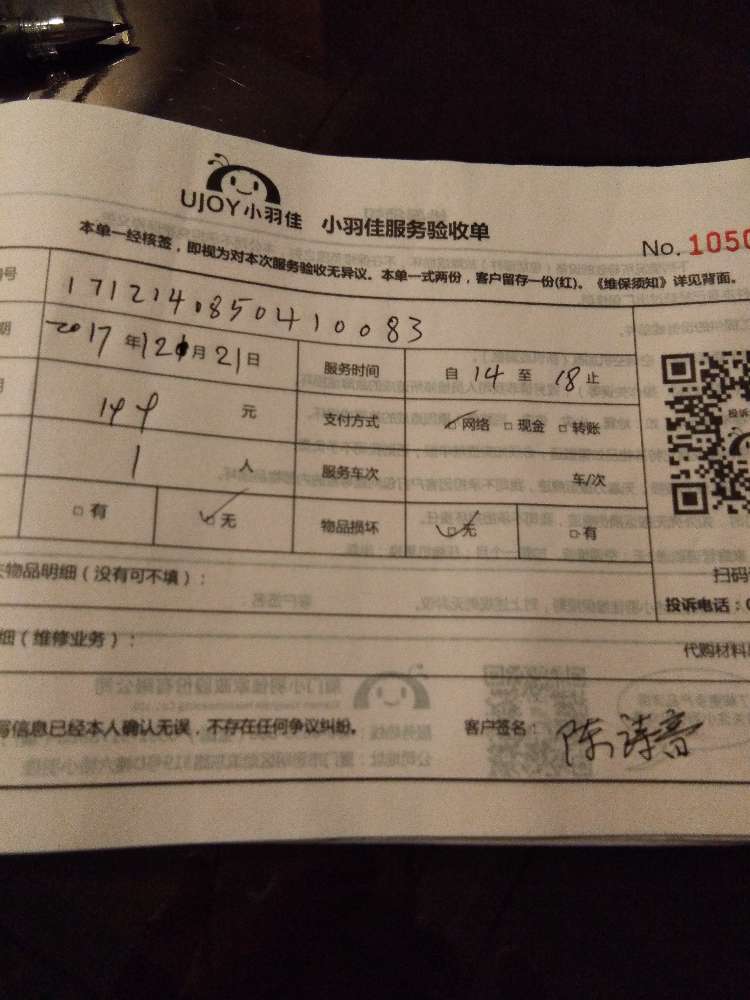 UJOY小羽佳 小羽佳服务验收单
No. 1050
本单一经核签，即视为对本次服务验收无异议。本单一式两份，客户留存一份(红)。《维保须知》详见背面。
号 17121408504410083
期 2017年12月21日 服务时间 自14至18止
元 支付方式 网络 现金 转账
1人 服务车次 车/次
有 无 物品损坏 无 有
物品明细（没有可不填）：
扫码
投诉电话：0
细（维修业务）：
代购材料
写信息已经本人确认无误，不存在任何争议纠纷。 客户签名：陈诗音